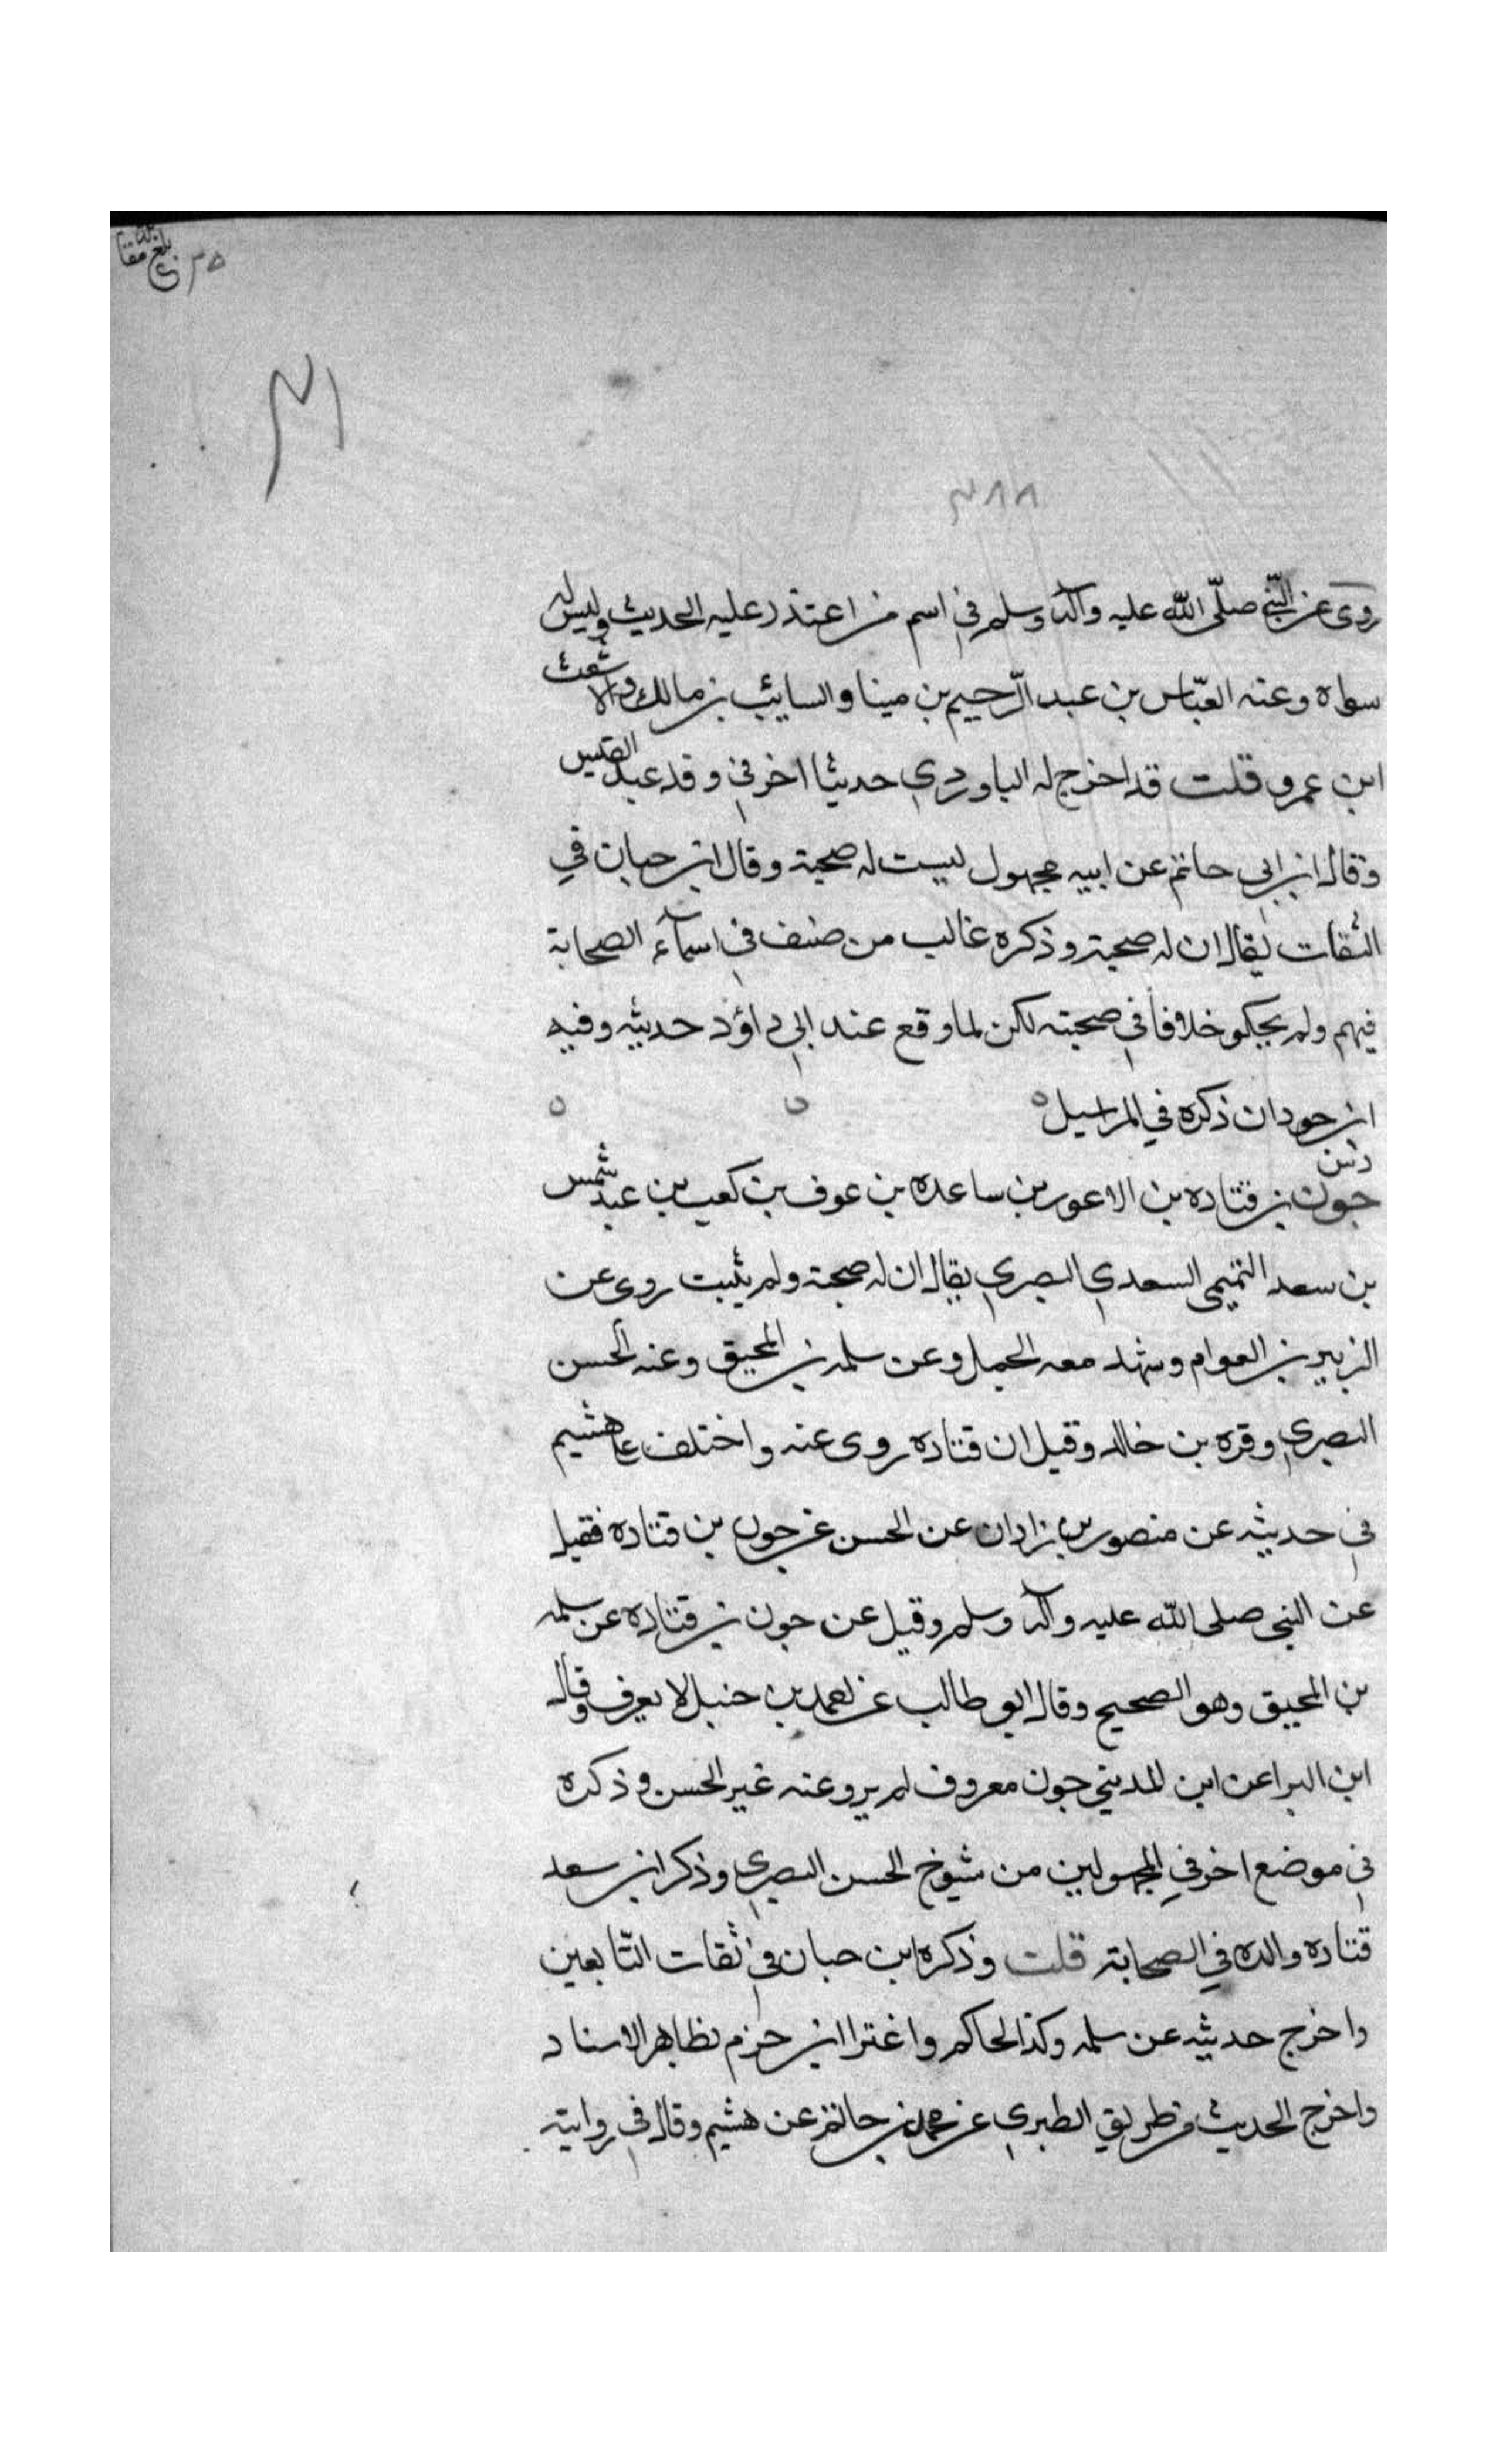 بلغ مقابلة
٣٥
٣١
٣٨٨
روى عن النبي صلّى الله عليه وآله وسلم في اسم من اعتذر عليه الحديث وليس له
سواه وعنه العبّاس بن عبد الرّحيم بن مينا والسايب بن مالك والاشعث
ابن عمرو قلت قد اخرج له الباوردي حديثا اخر في وفد عبد القيس
وقال ابن ابي حاتم عن ابيه مجهول ليست له صحبة وقال ابن حبان في
الثقات يقال ان له صحبة وذكره غالب من صنف في اسمآء الصحابة
فيهم ولم يحكو خلافا في صحبته لكن لما وقع عند ابي داؤد حديثه وفيه
ابن جودان ذكره في المراسيل
د س
جون بن قتاده بن الاعور بن ساعده بن عوف بن كعب بن عبد شمس
بن سعد التميمي السعدي البصري يقال ان له صحبة ولم يثبت روى عن
الزبير بن العوام وشهد معه الجمل وعن سلمه بن المحبق وعنه الحسن
البصري وقره بن خالد وقيل ان قتاده روى عنه واختلف على هشيم
في حديثه عن منصور بن زادان عن الحسن عن جون بن قتاده فقيل
عن النبي صلى الله عليه وآله وسلم وقيل عن جون بن قتاده عن سلمه
بن المحبق وهو الصحيح وقال ابو طالب عن احمد بن حنبل لا يعرف وقال
ابن البرا عن ابن المديني جون معروف لم يرو عنه غير الحسن وذكره
في موضع اخر في المجهولين من شيوخ الحسن البصري وذكر ابن سعد
قتاده والده في الصحابة قلت وذكره ابن حبان في ثقات التّابعين
واخرج حديثه عن سلمه وكذا الحاكم واغترا ابن حزم بظاهر الاسناد
واخرج الحديث من طريق الطبري عن محمد بن حاتم عن هشيم وقال في روايته